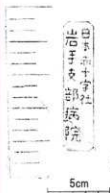 日本赤十字社
岩手支部病院
5cm